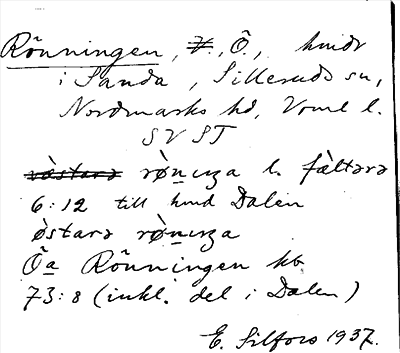 Rönningen, V., Ö., hmdr
i Sanda, Sillerud sn,
Nordmarks hd, Vrml l.
SV ST
västarə rø̀nıŋa l. fàltərə
6:12 till hmd Dalen
østarə rø̀nıŋa
Öa Rönningen kb
73:8 (inkl. del i Dalen)
E. Silfors 1937.